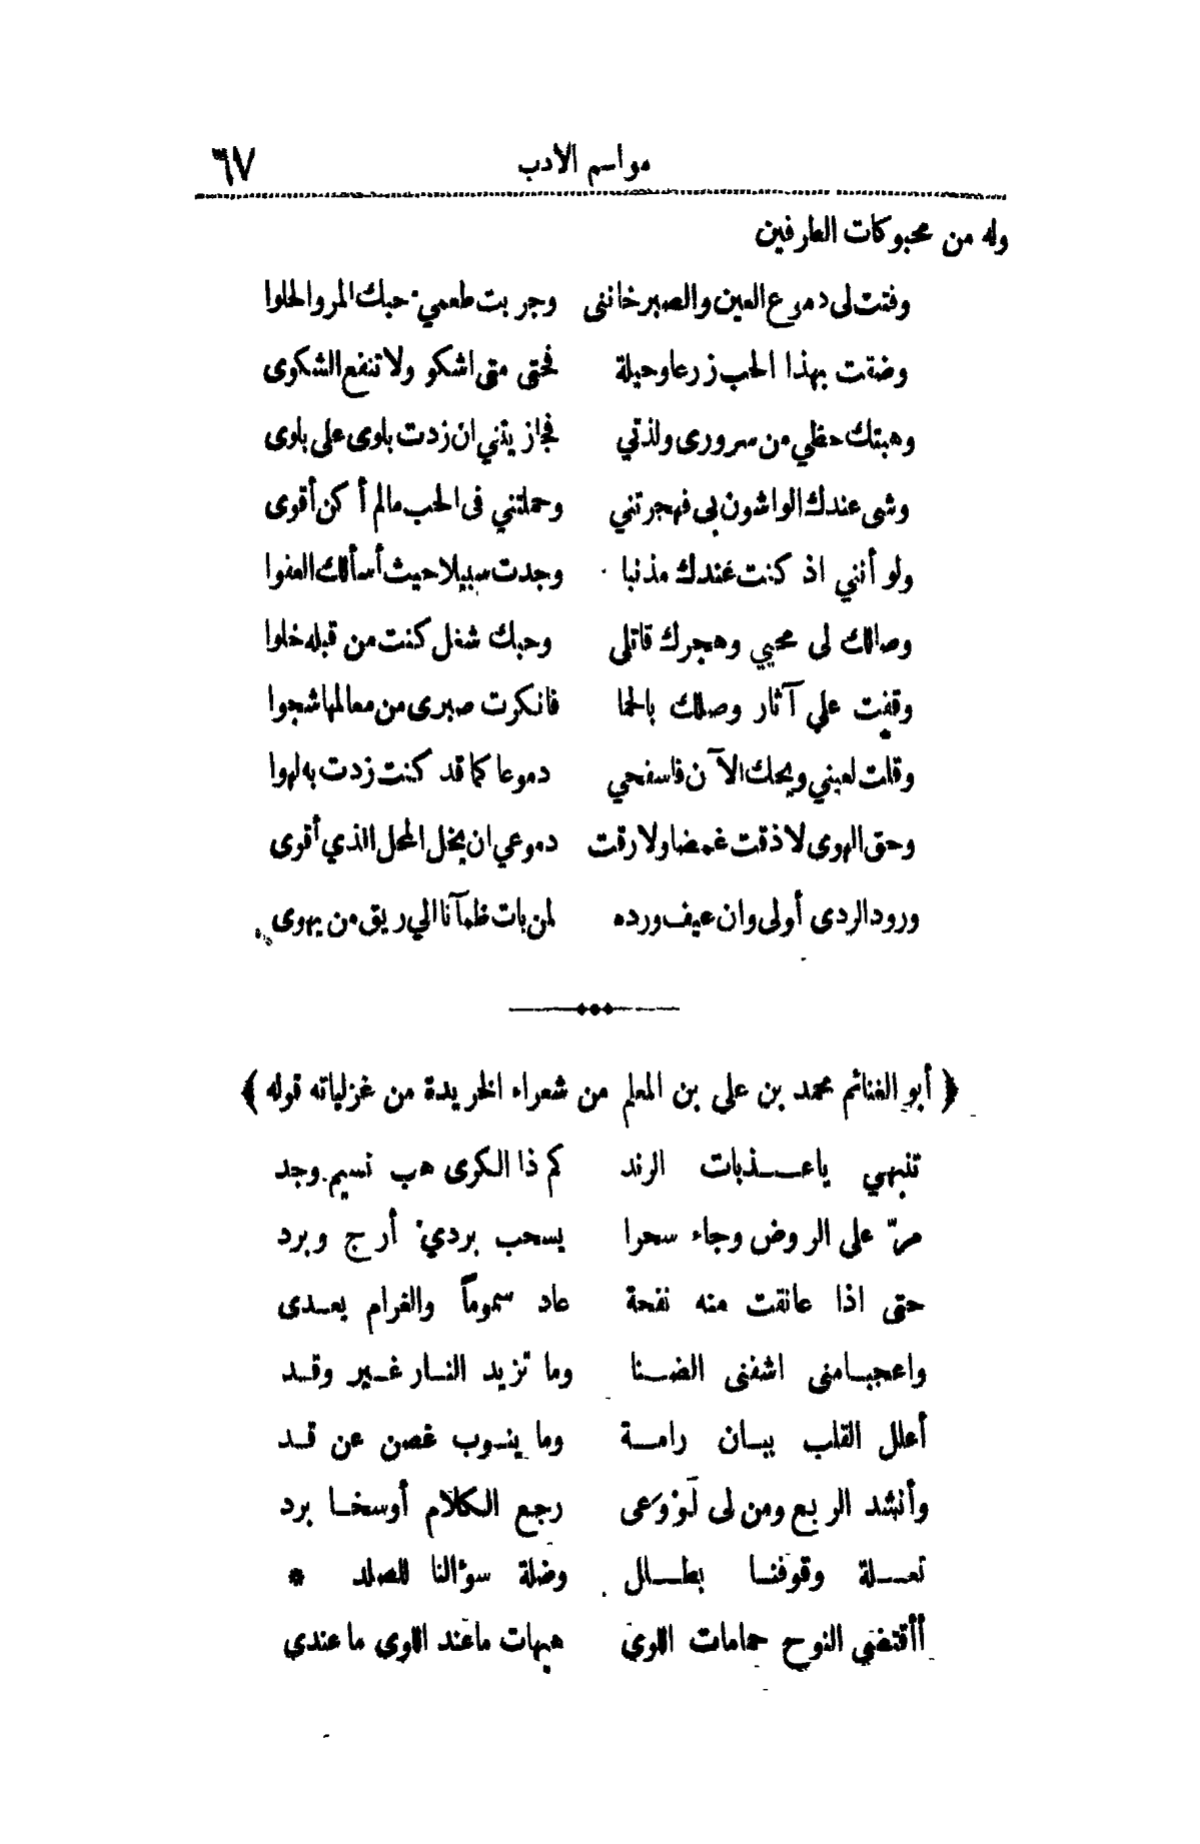 مواسم الأدب ٦٧
وله من محبوكات الطرفين
وفت لى دموع العين والصبر خانني وجربت طعمي حبك المر والحلوا
وضقت بهذا الحب زرعا وحيلة فحتى متى اشكو ولا تنفع الشكوى
وهبتك حظي من سرورى ولذتي فجازيتني ان زدت بلوى على بلوى
وشى عندك الواشون بي فهجرتني وحملتني فى الحب مالم أكن أقوى
ولو أنني اذ كنت عندك مذنبا وجدت سبيلا حيث أسألك العفوا
وصالك لى محيي وهجرك قاتلى وحبك شغل كنت من قبله خلوا
وقفت علي آثار وصلك بالحما فانكرت صبرى من معالمها شجوا
وقلت لعيني ويحك الآن فاسفحي دموعا كما قد كنت زدت به لهوا
وحق الهوى لا ذقت غمضا ولا رقت دموعي ان يخل المحل الذي أقوى
ورود الردى أولى وان عيف ورده لمن بات ظمآنا الي ريق من يهوى
﴿ أبو الغنائم محمد بن على بن المعلم من شعراء الخريدة من غزلياته قوله ﴾
تنبهي ياعذبات الرند كم ذا الكرى هب نسيم وجد
مرّ على الروض وجاء سحرا يسحب بردي أرج وبرد
حتى اذا عانقت منه نفحة عاد سموماً والغرام يعدى
واعجبا منى اشفنى الضنا وما تزيد النار غير وقد
أعلل القلب ببان رامة وما ينوب غصن عن قد
وأنشد الربع ومن لى لو وعى رجع الكلام أوسخا برد
تعلة وقوفنا بطلل وضلة سؤالنا للصلد *
أأقتضي النوح حمامات اللوى هيهات ماعند اللوى ماعندي